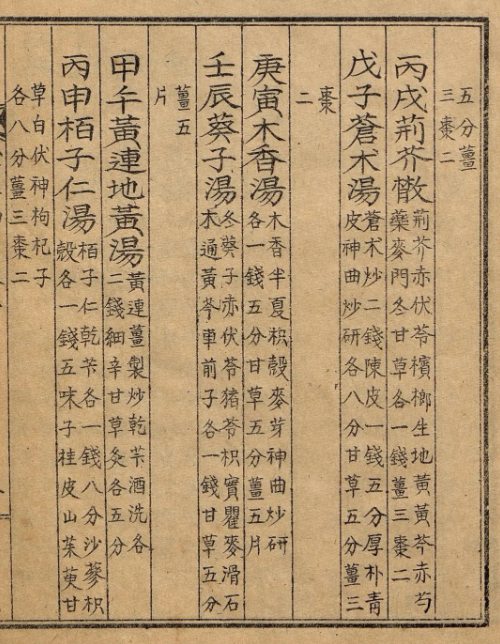 五分薑
三棗二
丙戌荊芥檄
荊芥赤伏苓檳榔生地黃黃芩赤芍
藥麥門冬甘草各一錢薑三棗二
戊子蒼朮湯
蒼朮炒二錢陳皮一錢五分厚朴靑
皮神曲炒研各八分甘草五分薑三
棗
二
庚寅木香湯
木香半夏枳殼麥芽神曲炒研
各一錢五分甘草五分薑五片
壬辰葵子湯
冬葵子赤伏苓猪苓枳實瞿麥滑石
木通黃芩車前子各一錢甘草五分
薑五
片
甲午黃連地黃湯
黃連薑製炒乾芐酒洗各
二錢細辛甘草灸各五分
丙申栢子仁湯
栢子仁乾芐各一錢八分沙蔘枳
殼各一錢五味子桂皮山茱萸甘
草白伏神枸杞子
各八分薑三棗二